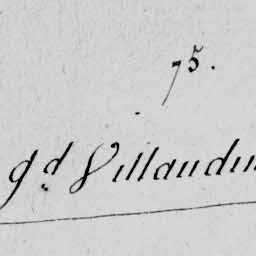 75.
gd Villaudin